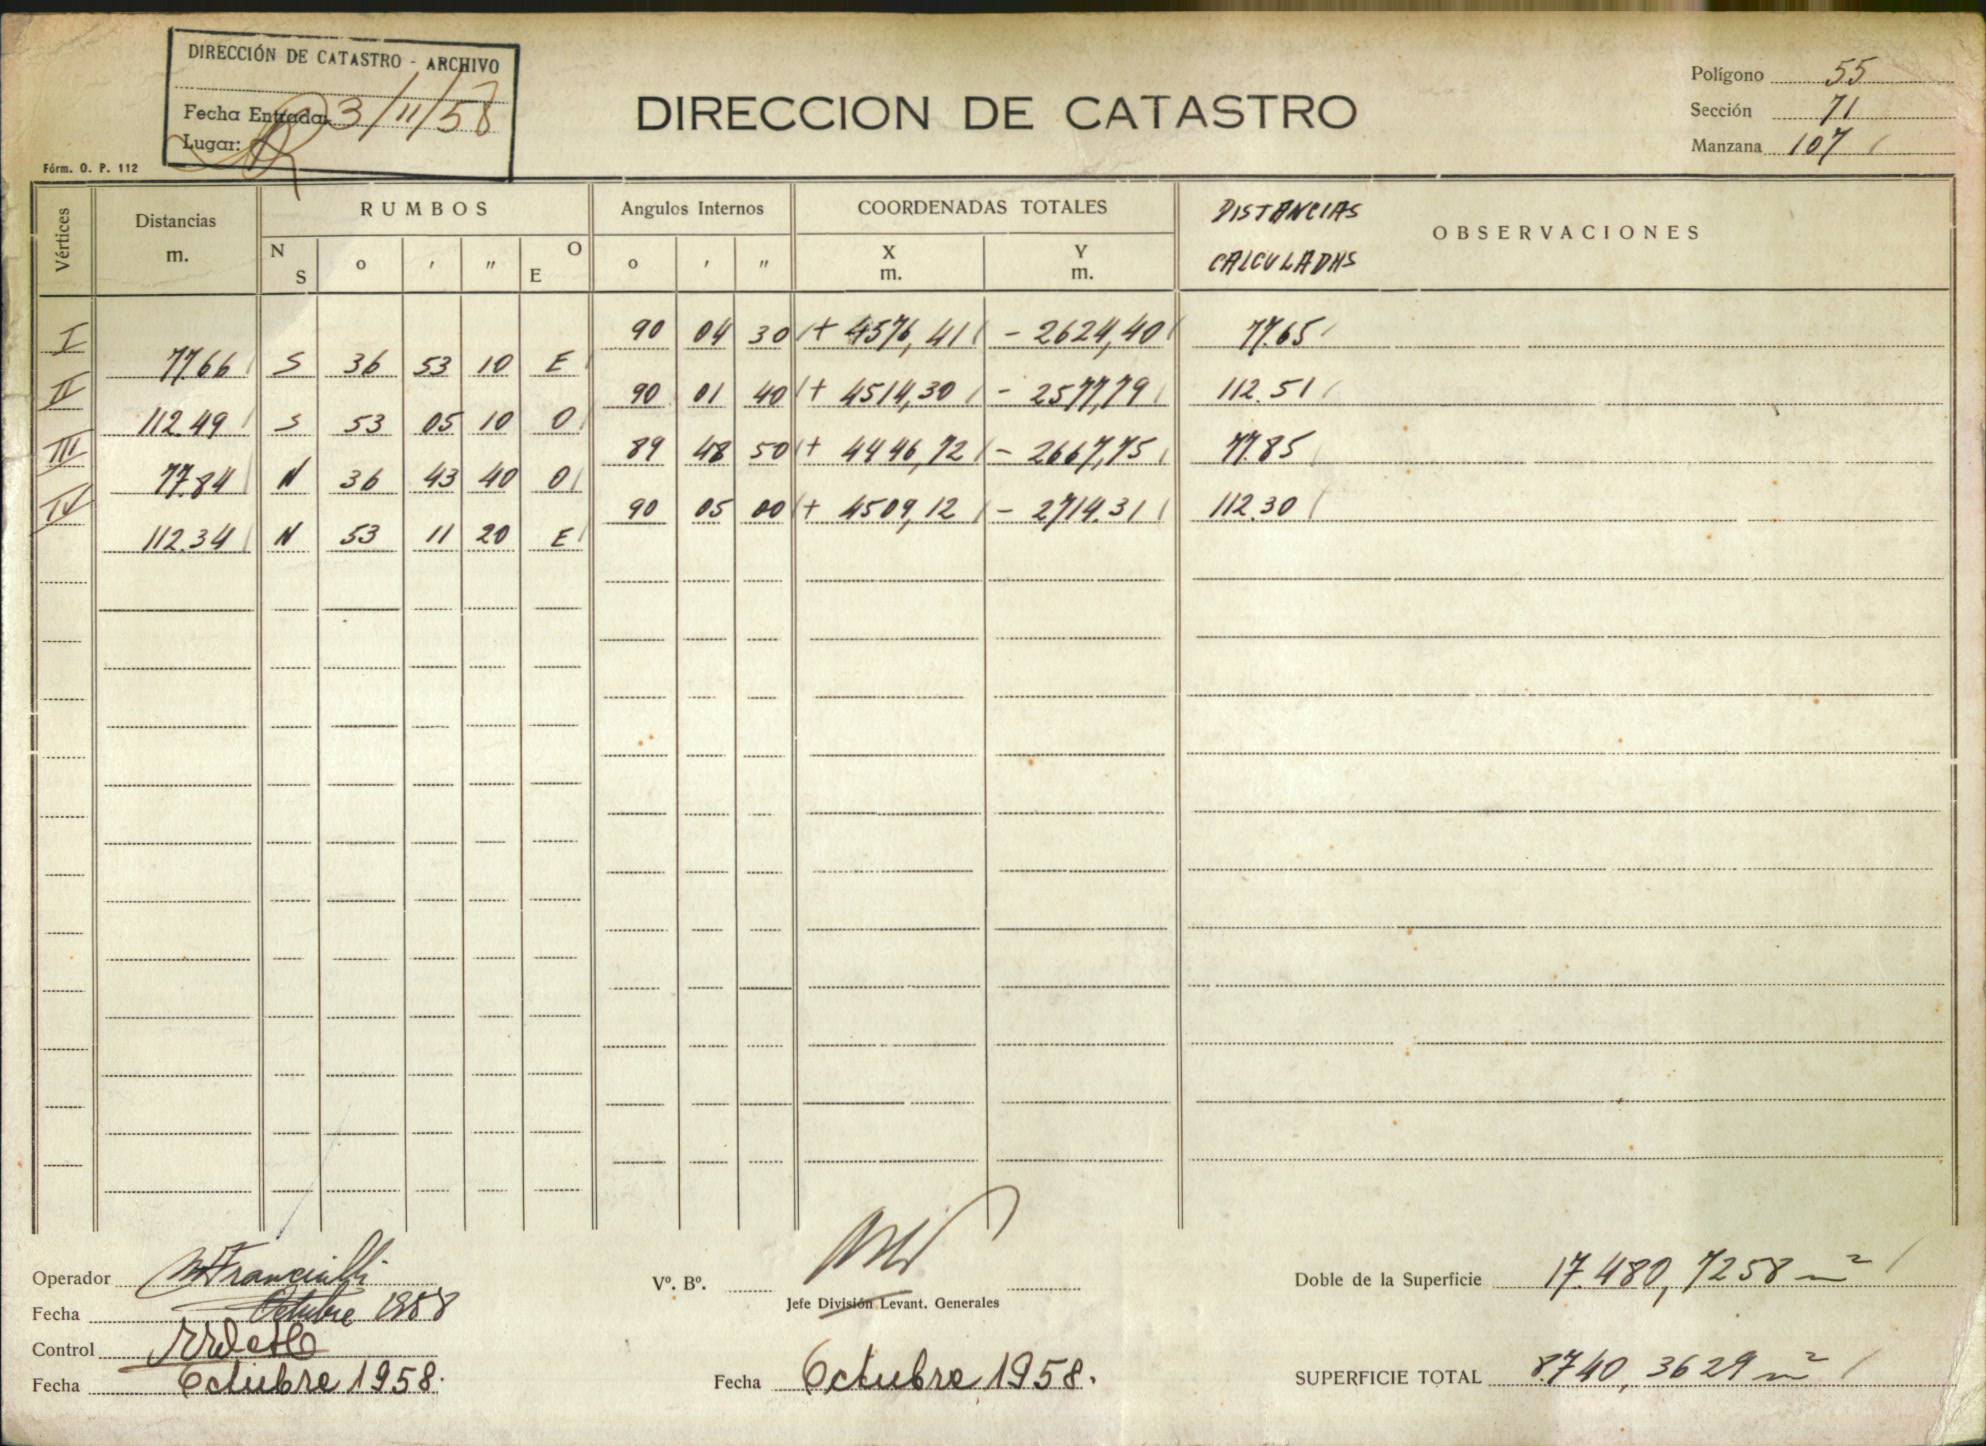 DIRECCIÓN DE CATASTRO - ARCHIVO
Fecha Entrada: 3/11/58
Lugar:
Fórm. O. P. 112
DIRECCION DE CATASTRO
Polígono 55
Sección 71
Manzana 107
Vértices Distancias m. RUMBOS Angulos Internos COORDENADAS TOTALES DISTANCIAS CALCULADAS OBSERVACIONES
N S o ′ ″ O E o ′ ″ X m. Y m.
I 90 04 30 + 4576,41 - 2624,40 77.65
77.66 S 36 53 10 E
II 90 01 40 + 4514,30 - 2577,79 112.51
112.49 S 53 05 10 O
III 89 48 50 + 4446,72 - 2667,75 77.85
77.84 N 36 43 40 O
IV 90 05 00 + 4509,12 - 2714.31 112.30
112.34 N 53 11 20 E
Operador
Fecha Octubre 1958
Control
Fecha Octubre 1958.
Vº. Bº.
Jefe División Levant. Generales
Fecha Octubre 1958.
Doble de la Superficie 17.480,7258 m²
SUPERFICIE TOTAL 8.740,3629 m²